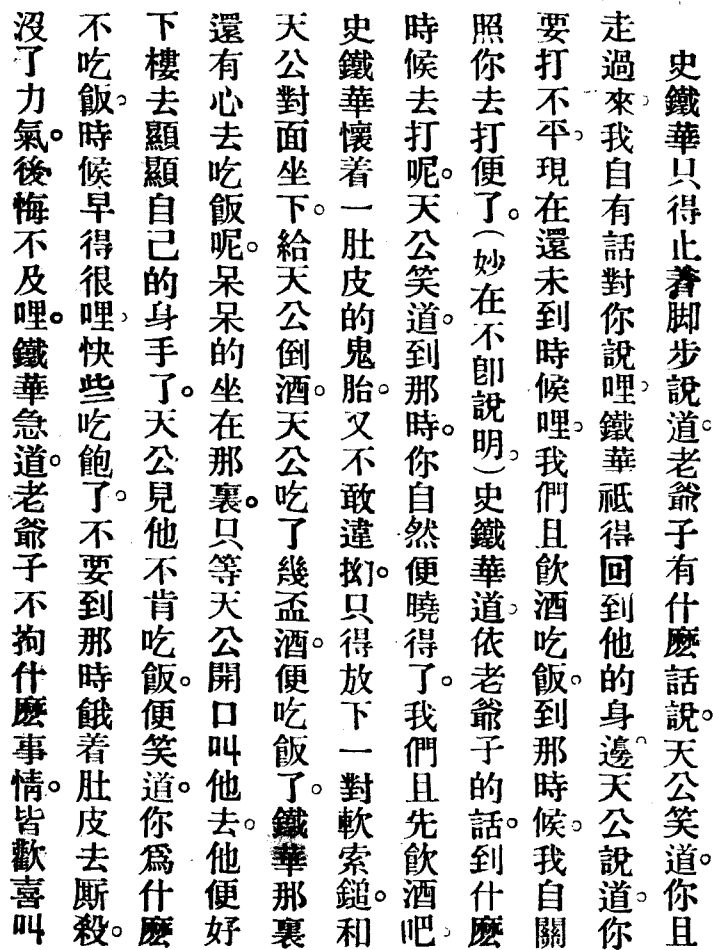 史鐵華只得止著脚步說道。老爺子有什麽話說。天公笑道。你且
走過來。我自有話對你說哩。鐵華祗得回到他的身邊。天公說道。你
要打不平。現在還未到時候哩。我們且飲酒吃飯。到那時候。我自關
照你去打便了。(妙在不卽說明。)史鐵華道。依老爺子的話。到什麽
時候去打呢。天公笑道。到那時。你自然便曉得了。我們且先飲酒吧。
史鐵華懷着一肚皮的鬼胎。又不敢違拗。只得放下一對軟索鎚。和
天公對面坐下。給天公倒酒。天公吃了幾盃酒。便吃飯了。鐵華那裏
還有心去吃飯呢。呆呆的坐在那裏。只等天公開口叫他去。他便好
下樓去顯顯自己的身手了。天公見他不肯吃飯。便笑道。你爲什麽
不吃飯。時候早得很哩。快些吃飽了。不要到那時餓着肚皮去厮殺。
沒了力氣。後悔不及哩。鐵華急道。老爺子不拘什麽事情。皆歡喜叫